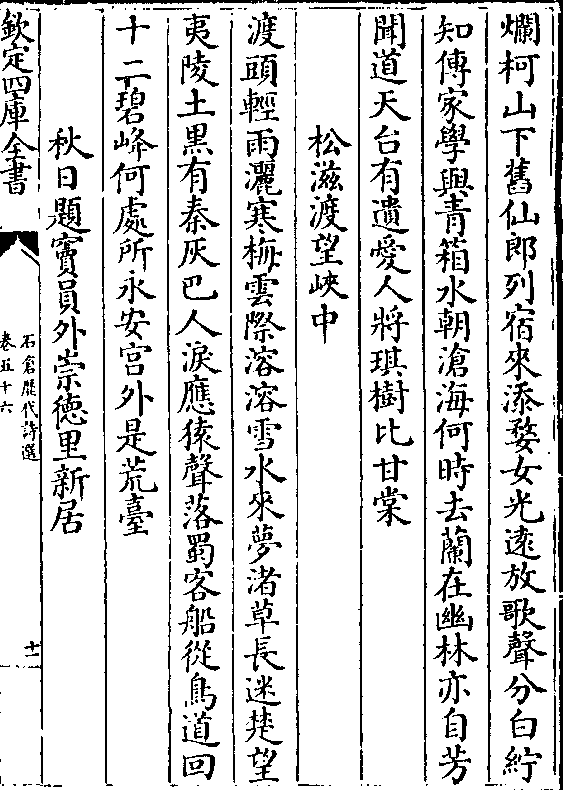 爛柯山下舊仙郎列宿來添婺女光遠放歌聲分白紵
知傳家學與青箱水朝滄海何時去蘭在幽林亦自芳
聞道天台有遺愛人將琪樹比甘棠
松滋渡望峽中
渡頭輕雨灑寒梅雲際溶溶雪水來夢渚草長迷楚望
夷陵土黑有秦灰巴人淚應猿聲落蜀客船從鳥道回
十二碧峰何處所永安宮外是荒臺
秋日題竇員外崇德里新居
欽定四庫全書
石倉歷代詩選
卷五十六
十一